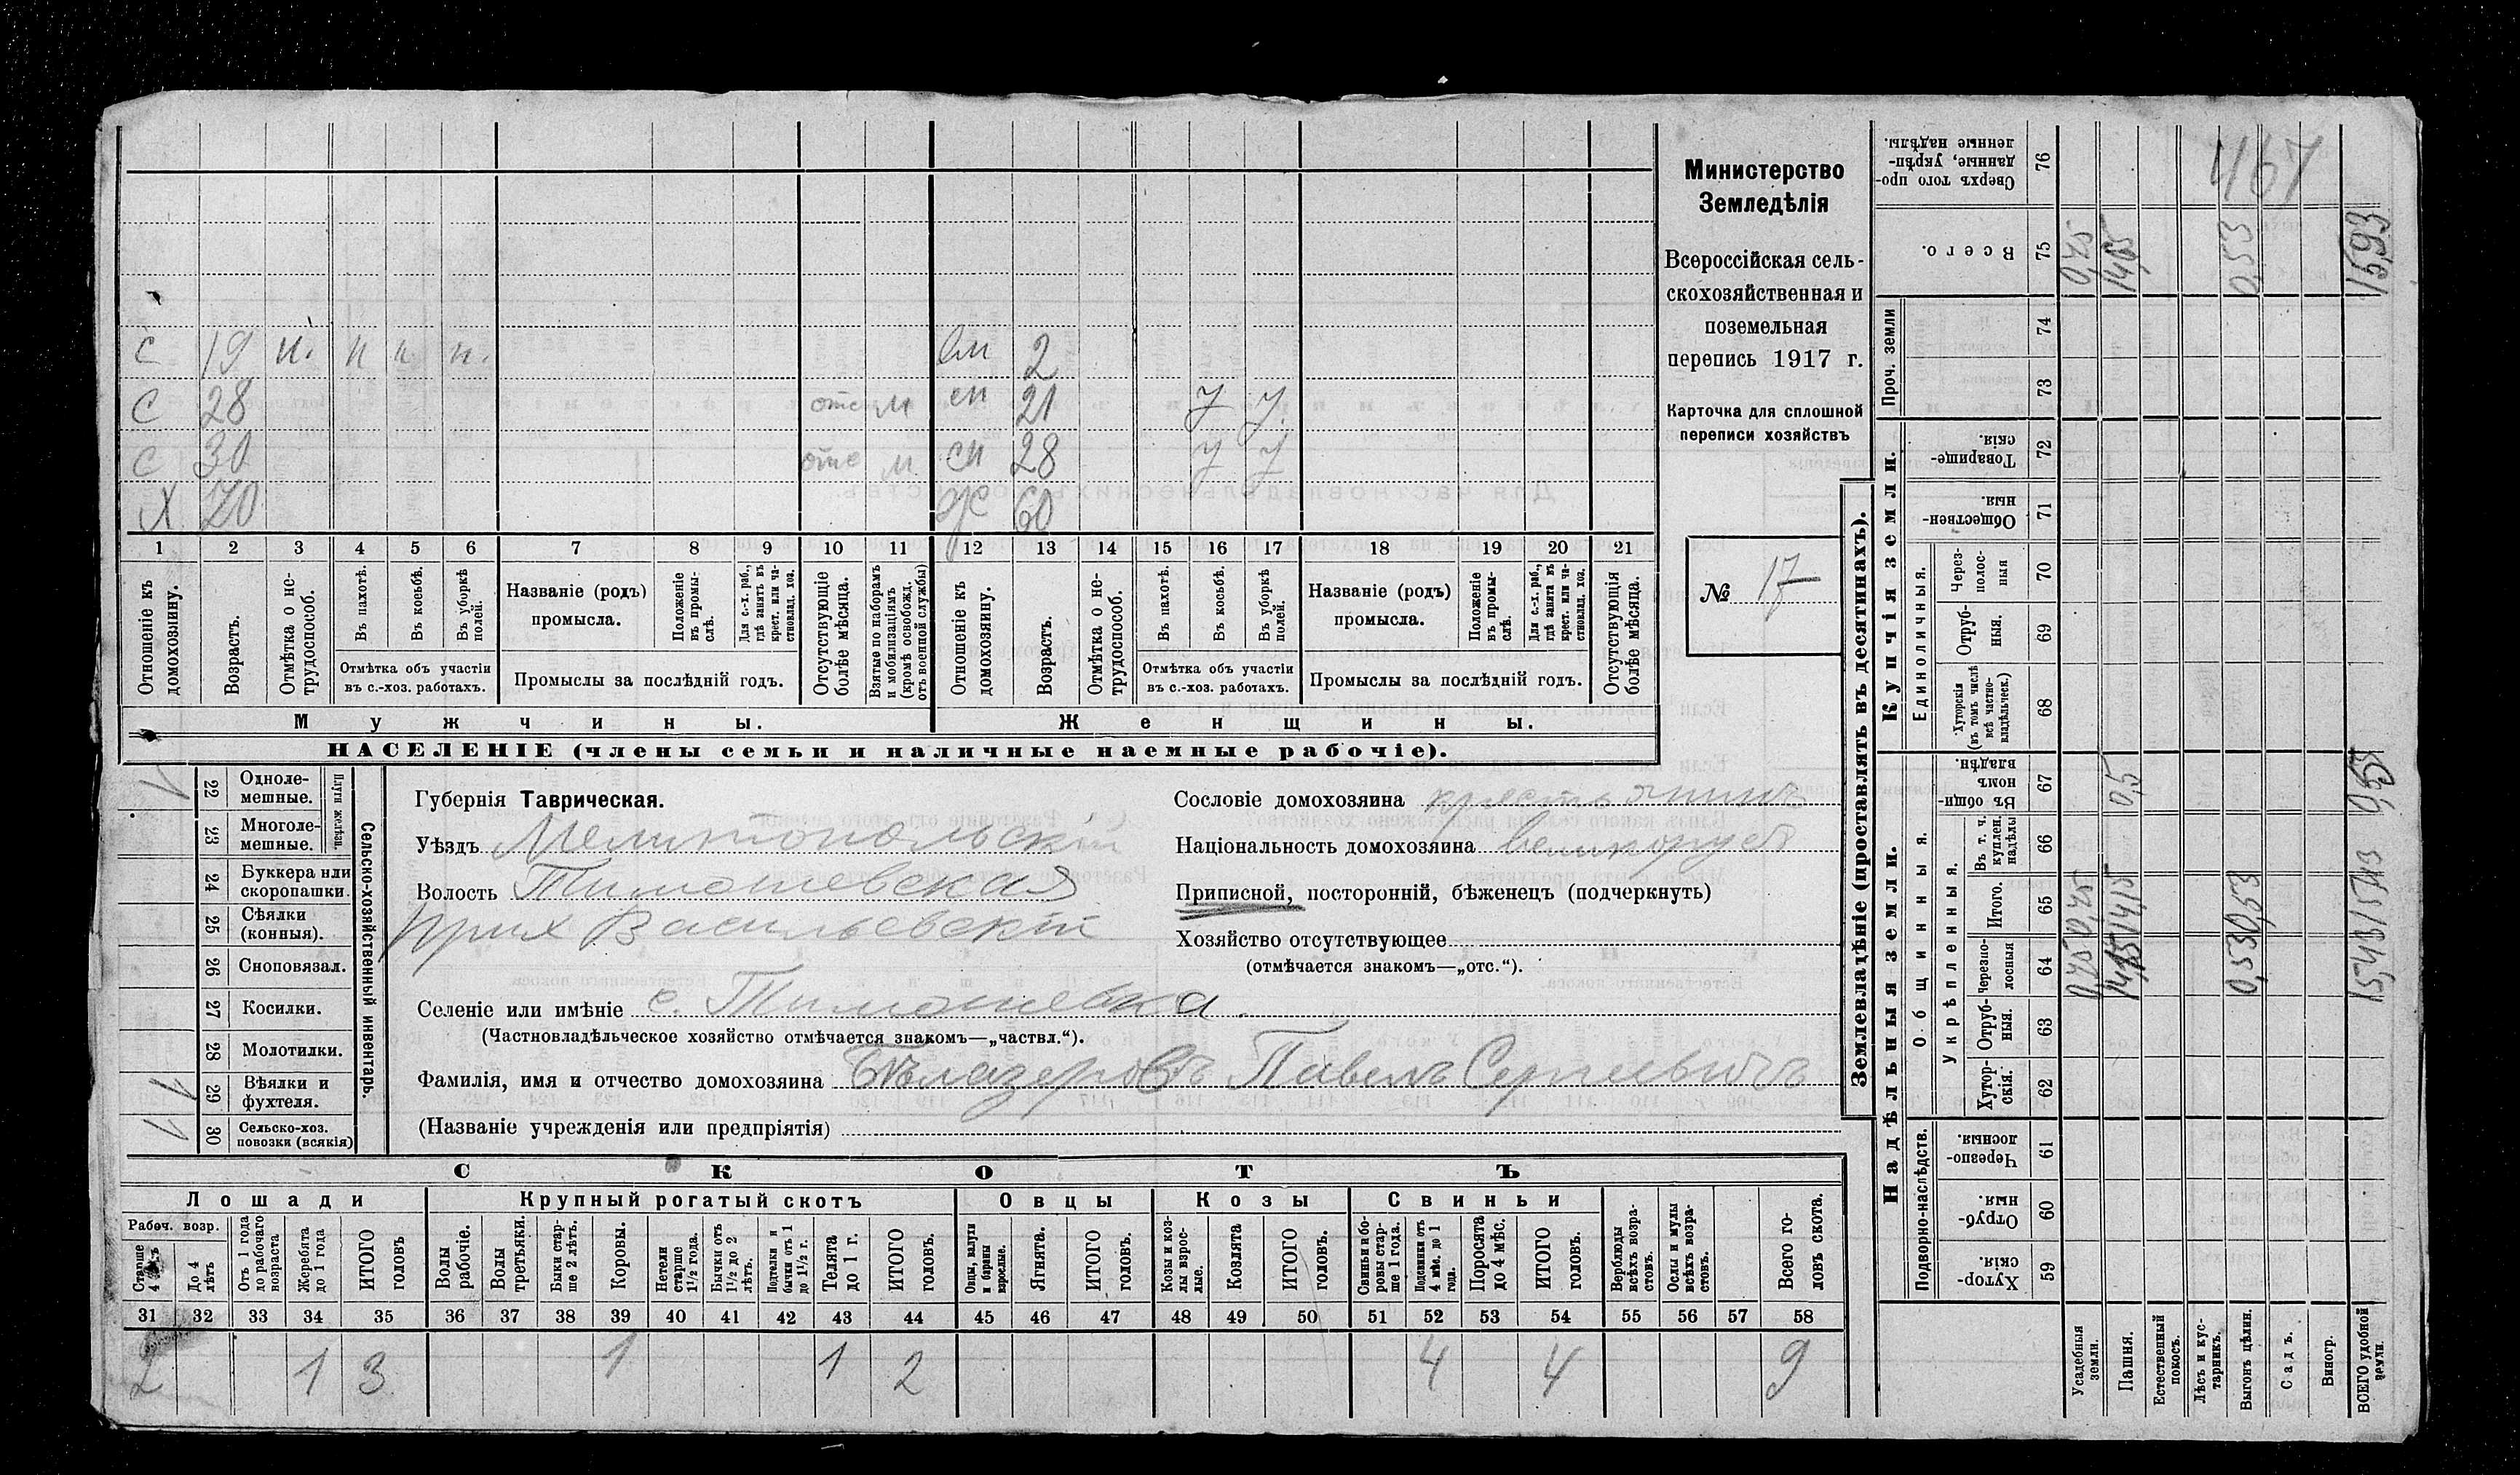 Министерство
Земледѣлія
Всероссійская сель-
скохозяйственная и
поземельная
перепись 1917 г.
Карточка для сплошной
переписи хозяйствъ
№ 17
с 19 н. н н н. вн 2
с 28 отс м сн 21 у у
с 30 отс м сн 28 у у
Х 70 ж 60
1 2 3 4 5 6 7 8 9 10 11 12 13 14 15 16 17 18 19 20 21
Отношеніе къ домохозяину.
Возрастъ.
Отмѣтка о не-трудоспособ.
Въ пахотѣ.
Въ косьбѣ.
Въ уборкѣ полей.
Отмѣтка объ участіи
въ с.-хоз. работахъ.
Названіе (родъ)
промысла.
Положеніе въ промы-слѣ.
Для с.-х. раб., гдѣ занятъ въ крест. или ча-стновлад. хоз.
Промыслы за послѣдній годъ.
Отсутствующіе болѣе мѣсяца.
Взятые по наборамъ и мобилизаціямъ (кромѣ освобожд. отъ военной службы)
Отношеніе къ домохозяину.
Возрастъ.
Отмѣтка о не-трудоспособ.
Въ пахотѣ.
Въ косьбѣ.
Въ уборкѣ полей.
Отмѣтка объ участіи
въ с.-хоз. работахъ.
Названіе (родъ)
промысла.
Положеніе въ промы-слѣ.
Для с.-х. раб., гдѣ занята въ крест. или ча-стновлад. хоз.
Промыслы за послѣдній годъ.
Отсутствующія болѣе мѣсяца.
Мужчины.
Женщины.
НАСЕЛЕНІЕ (члены семьи и наличные наемные рабочіе).
Сельско-хозяйственный инвентарь.
Плуги желѣзн.
22 Одноле-мешные.
23 Многоле-мешные.
24 Буккера или скоропашки.
25 Сѣялки (конныя).
26 Сноповязал.
27 Косилки.
28 Молотилки.
29 Вѣялки и фухтеля.
30 Сельско-хоз. повозки (всякія)
Губернія Таврическая.
Уѣздъ Мелитопольскій
Волость Тимошевская
прих Васильевскій
Селеніе или имѣніе с. Тимошевка.
(Частновладѣльческое хозяйство отмѣчается знакомъ—„частвл.“).
Фамилія, имя и отчество домохозяина Бѣлазеровъ Павелъ Сергѣевичъ
(Названіе учрежденія или предпріятія)
Сословіе домохозяина крестьянинъ
Національность домохозяина великорусъ
Приписной, посторонній, бѣженецъ (подчеркнуть)
Хозяйство отсутствующее
(отмѣчается знакомъ—„отс.“).
СКОТЪ
Лошади Крупный рогатый скотъ Овцы Козы Свиньи
Рабоч. возр.
Старше 4 лѣтъ
До 4 лѣтъ
Отъ 1 года до рабочаго возраста
Жеребята до 1 года
ИТОГО головъ
Волы рабочіе.
Волы третьяки.
Быки стар-ше 2 лѣтъ.
Коровы.
Нетели старше 1½ года.
Бычки отъ 1½ до 2 лѣтъ.
Подтелки и бычки отъ 1 до 1½ г.
Телята до 1 г.
ИТОГО головъ.
Овцы, валухи и бараны взрослые.
Ягнята.
ИТОГО головъ.
Козы и коз-лы взрос-лые.
Козлята
ИТОГО головъ.
Свиньи и бо-ровы стар-ше 1 года.
Подсвинки отъ 4 мѣс. до 1 года.
Поросята до 4 мѣс.
ИТОГО головъ.
Верблюды всѣхъ возра-стовъ.
Ослы и мулы всѣхъ возра-стовъ.
Всего го-ловъ скота.
31 32 33 34 35 36 37 38 39 40 41 42 43 44 45 46 47 48 49 50 51 52 53 54 55 56 57 58
2 1 3 1 1 2 4 4 9
Землевладѣніе (проставлять въ десятинахъ).
Надѣльныя земли.
Купчія земли.
Проч. земли
Подворно-наслѣдств.
Общинныя.
Укрѣпленныя.
Единоличныя.
Хутор-скія. 59
Отруб-ныя. 60
Черезпо-лосныя. 61
Хутор-скія. 62
Отруб-ныя. 63
Черезпо-лосныя 64
Итого. 65
Въ т. ч. куплен. надѣлы 66
Въ общин-номъ владѣн. 67
Хуторскія (въ томъ числѣ всѣ частно-владѣльческ.) 68
Отруб-ныя. 69
Через-полос-ныя 70
Обществен-ныя 71
Товарище-скія. 72
73
74
Всего. 75
Сверхъ того про-данные, укрѣп-ленные надѣлы. 76
467
Усадебныя земли. 0,75 0,75 0,75
Пашня. 14,15 14,15 0,5 14,65
Естественный покосъ.
Лѣсъ и кус-тарникъ.
Выгонъ цѣлин. 0,53 0,53 0,53
Садъ.
Виногр.
ВСЕГО удобной земли. 15,43 15,43 15,93